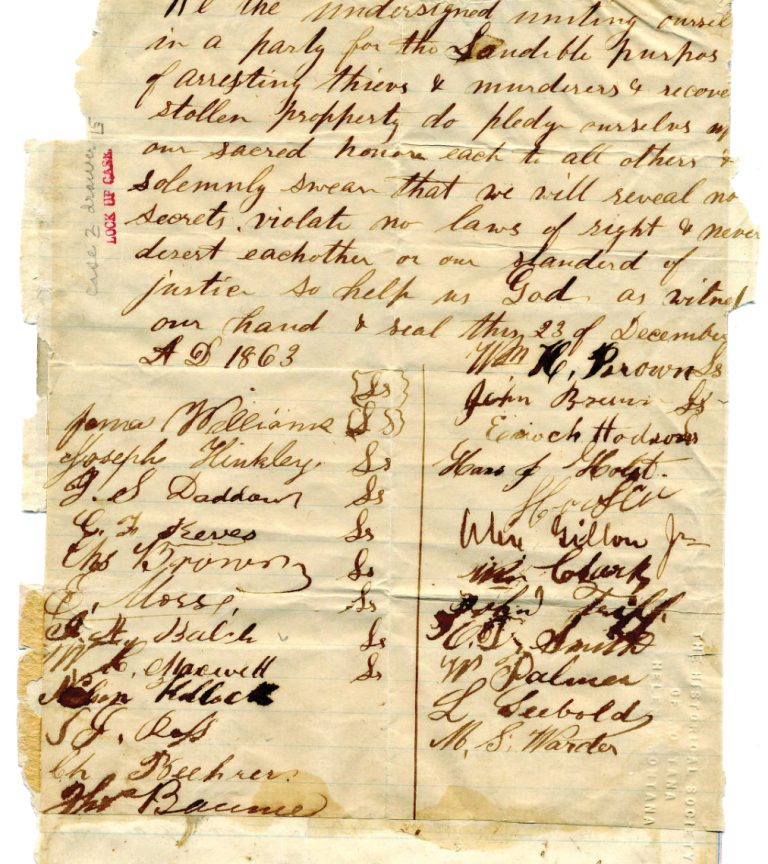 We the undersigned uniting oursel
in a party for the Laudible purpos
of arresting thievs & murderers & recove
stollen propperty do pledge ourselvs up
our sacred honor each to all others &
solemnly swear that we will reveal no
secrets, violate no laws of right & never
desert eachother or our standerd of
justice so help us God as witnes
our hand & seal this 23 of December
A D 1863
case 2 drawer 15
LOCK UP CASE
{Ls}
James Williams {Ls}
Joseph Hinkley Ls
J. S. Daddow Ls
C. F. Keeves Ls
Chs Brown Ls
E. Morse, Ls
J H Balch Ls
W. C. Maxwell Ls
Nelson Kellock
S. J. Ross
Ch Beehrer
Thos Baume
Wm H. Brown Ls
John Brown Ls
Enoch Hodson
Hans J Holst.
Alex Gillon Jr
Wm Clark
John Triff
C. F. Smith
W Palmer
L Seebold
M. S. Warder
THE HISTORICAL SOCIETY
OF MONTANA
HELENA MONTANA